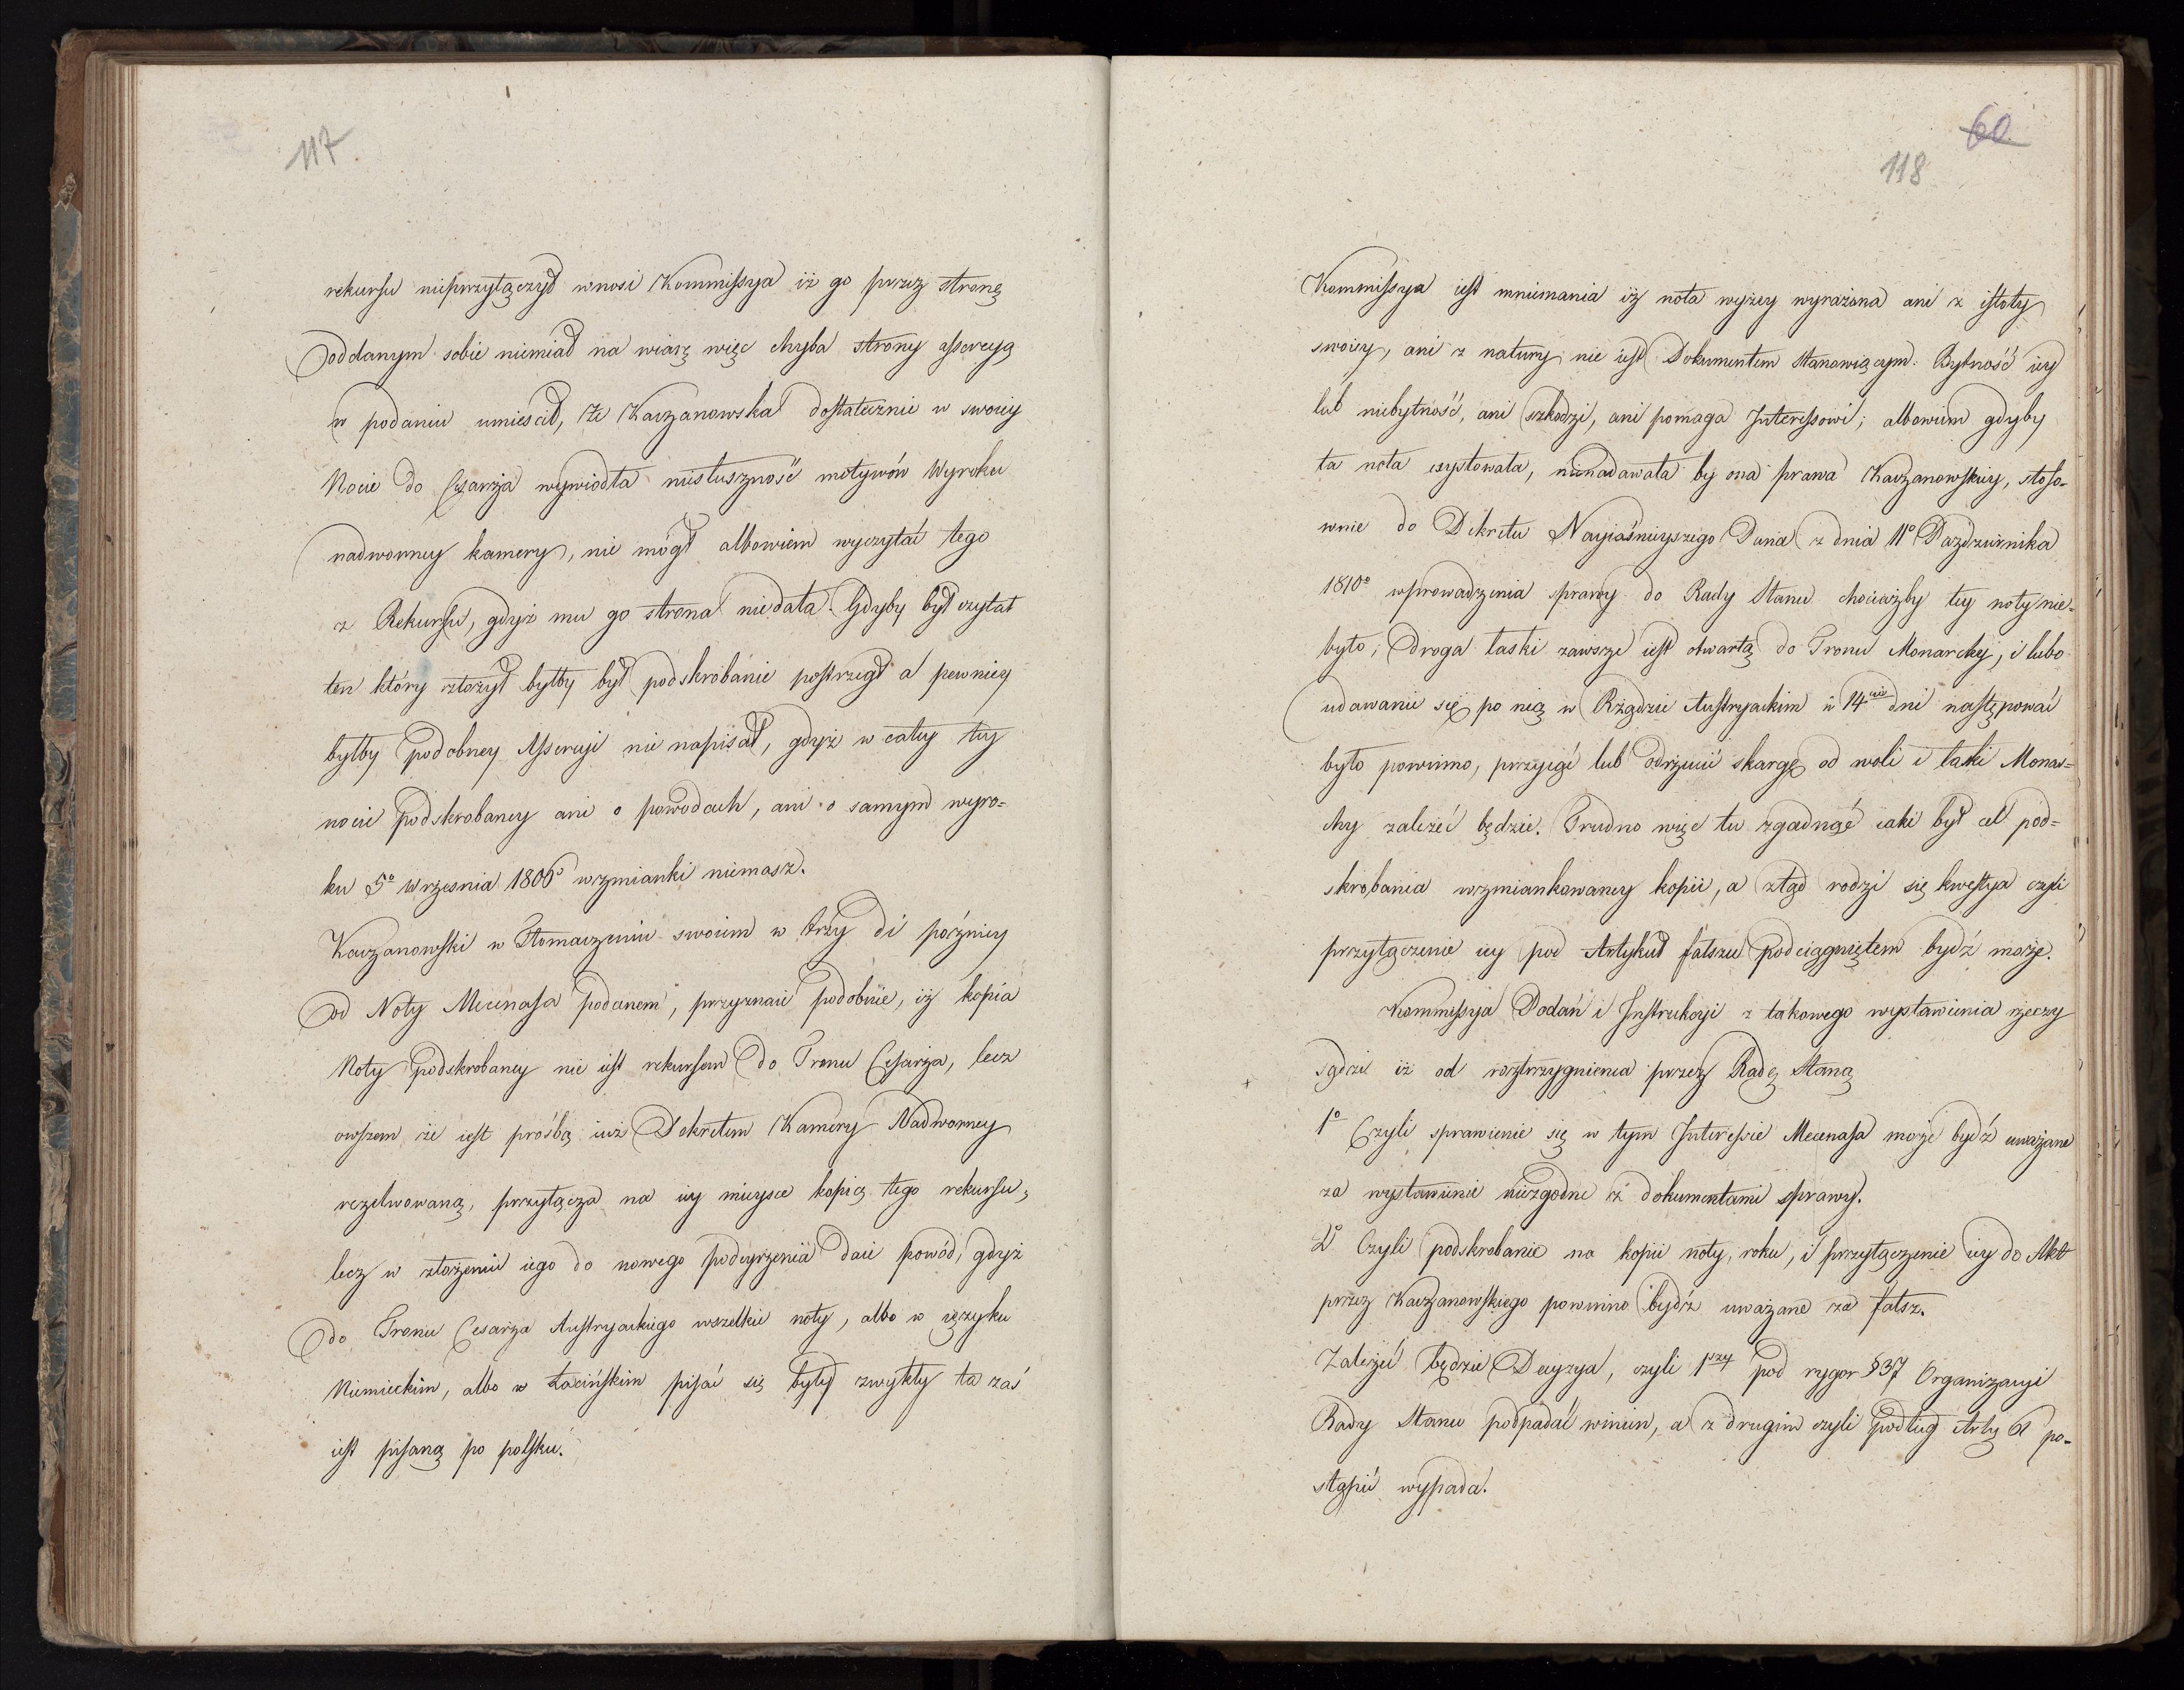 117.
rekursu nieprzyłączył wnosi Kommissya iż go przez stronę
oddanym sobie niemiał na wiarę więc chyba strony assercyą
w podaniu umieścił, że Kaczanowska dostatecznie w swoiey
Nocie do Cesarza wywiodła niesłuszność motywów Wyroku
nadworney kamery, nie mógł albowiem wyczytać tego
z Rekursu, gdyż mu go strona niedała. Gdyby był czytał
ten który złożył byłby był podskrobanie postrzegł a pewniey
byłby podobney Assercyi nie napisał, gdyż w całey tey
nocie podskrobaney ani o powodach, ani o samym wyro=
ku 5º Września 1806º wzmianki niemasz.
Kaczanowski w Tłomaczeniu swoim w trzy di późniey
od Noty Mecenasa podanem, przyznaie podobnie, iż kopia
Noty podskrobaney nie iest rekursem do Tronu Cesarza, lecz
owszem że iest prośbą iuż Dekretem Kamery Nadworney
rezolwowaną, przyłącza na iey mieysce kopią tego rekursu,
lecz w złożeniu iego do nowego podeyrzenia daie powód, gdyż
do Tronu Cesarza Austryackiego wszelkie noty, albo w ięzyku
Niemieckim, albo w Łacińskim pisać się były zwykły ta zaś
iest pisaną po polsku.
60
118
Kommissya iest mniemania iż nota wyżey wyrażona ani z istoty
swoiey, ani z natury nie iest Dokumentem stanowiącym. Bytność iey
lub niebytność, ani szkodzi, ani pomaga Interessowi; albowiem gdyby
ta nota exystowała, nienadawała by ona prawa Kaczanowskiey, stoso=
wnie do Dekretu Nayiaśnieyszego Pana z dnia 11º Pazdziernika
1810º wprowadzenia sprawy do Rady Stanu chociażby tey noty nie=
było; Droga łaski zawsze iest otwartą do Tronu Monarchy, i lubo
udawanie się po nią w Rządzie Austryackim w 14cie dni następować
było powinno, przyiąć lub odrzucić skargę od woli i łaski Monar=
chy zależeć będzie. Trudno więc tu zgadnąć iaki był cel pod=
skrobania wzmiankowaney kopii, a ztąd rodzi się kwestya czyli
przyłączenie iey pod Artykuł fałszu podciągniętem bydź może.
Kommissya Podań i Instrukcyi z takowego wystawienia rzeczy
sądzi iż od rozstrzygnienia przez Radę Stanu
1º Czyli sprawienie się w tym Interessie Mecenasa może bydź uważane
za wystawienie niezgodne z dokumentami sprawy.
2º Czyli podskrobanie na kopii noty, roku, i przyłączenie iey do Akt
przez Kaczanowskiego powinno bydź uważane za fałsz.
Zależeć będzie Decyzya, czyli 1szy pod rygor §37 Organizacyi
Rady Stanu podpadać winien, a z drugim czyli podług Arty 61 po=
stąpić wypada.